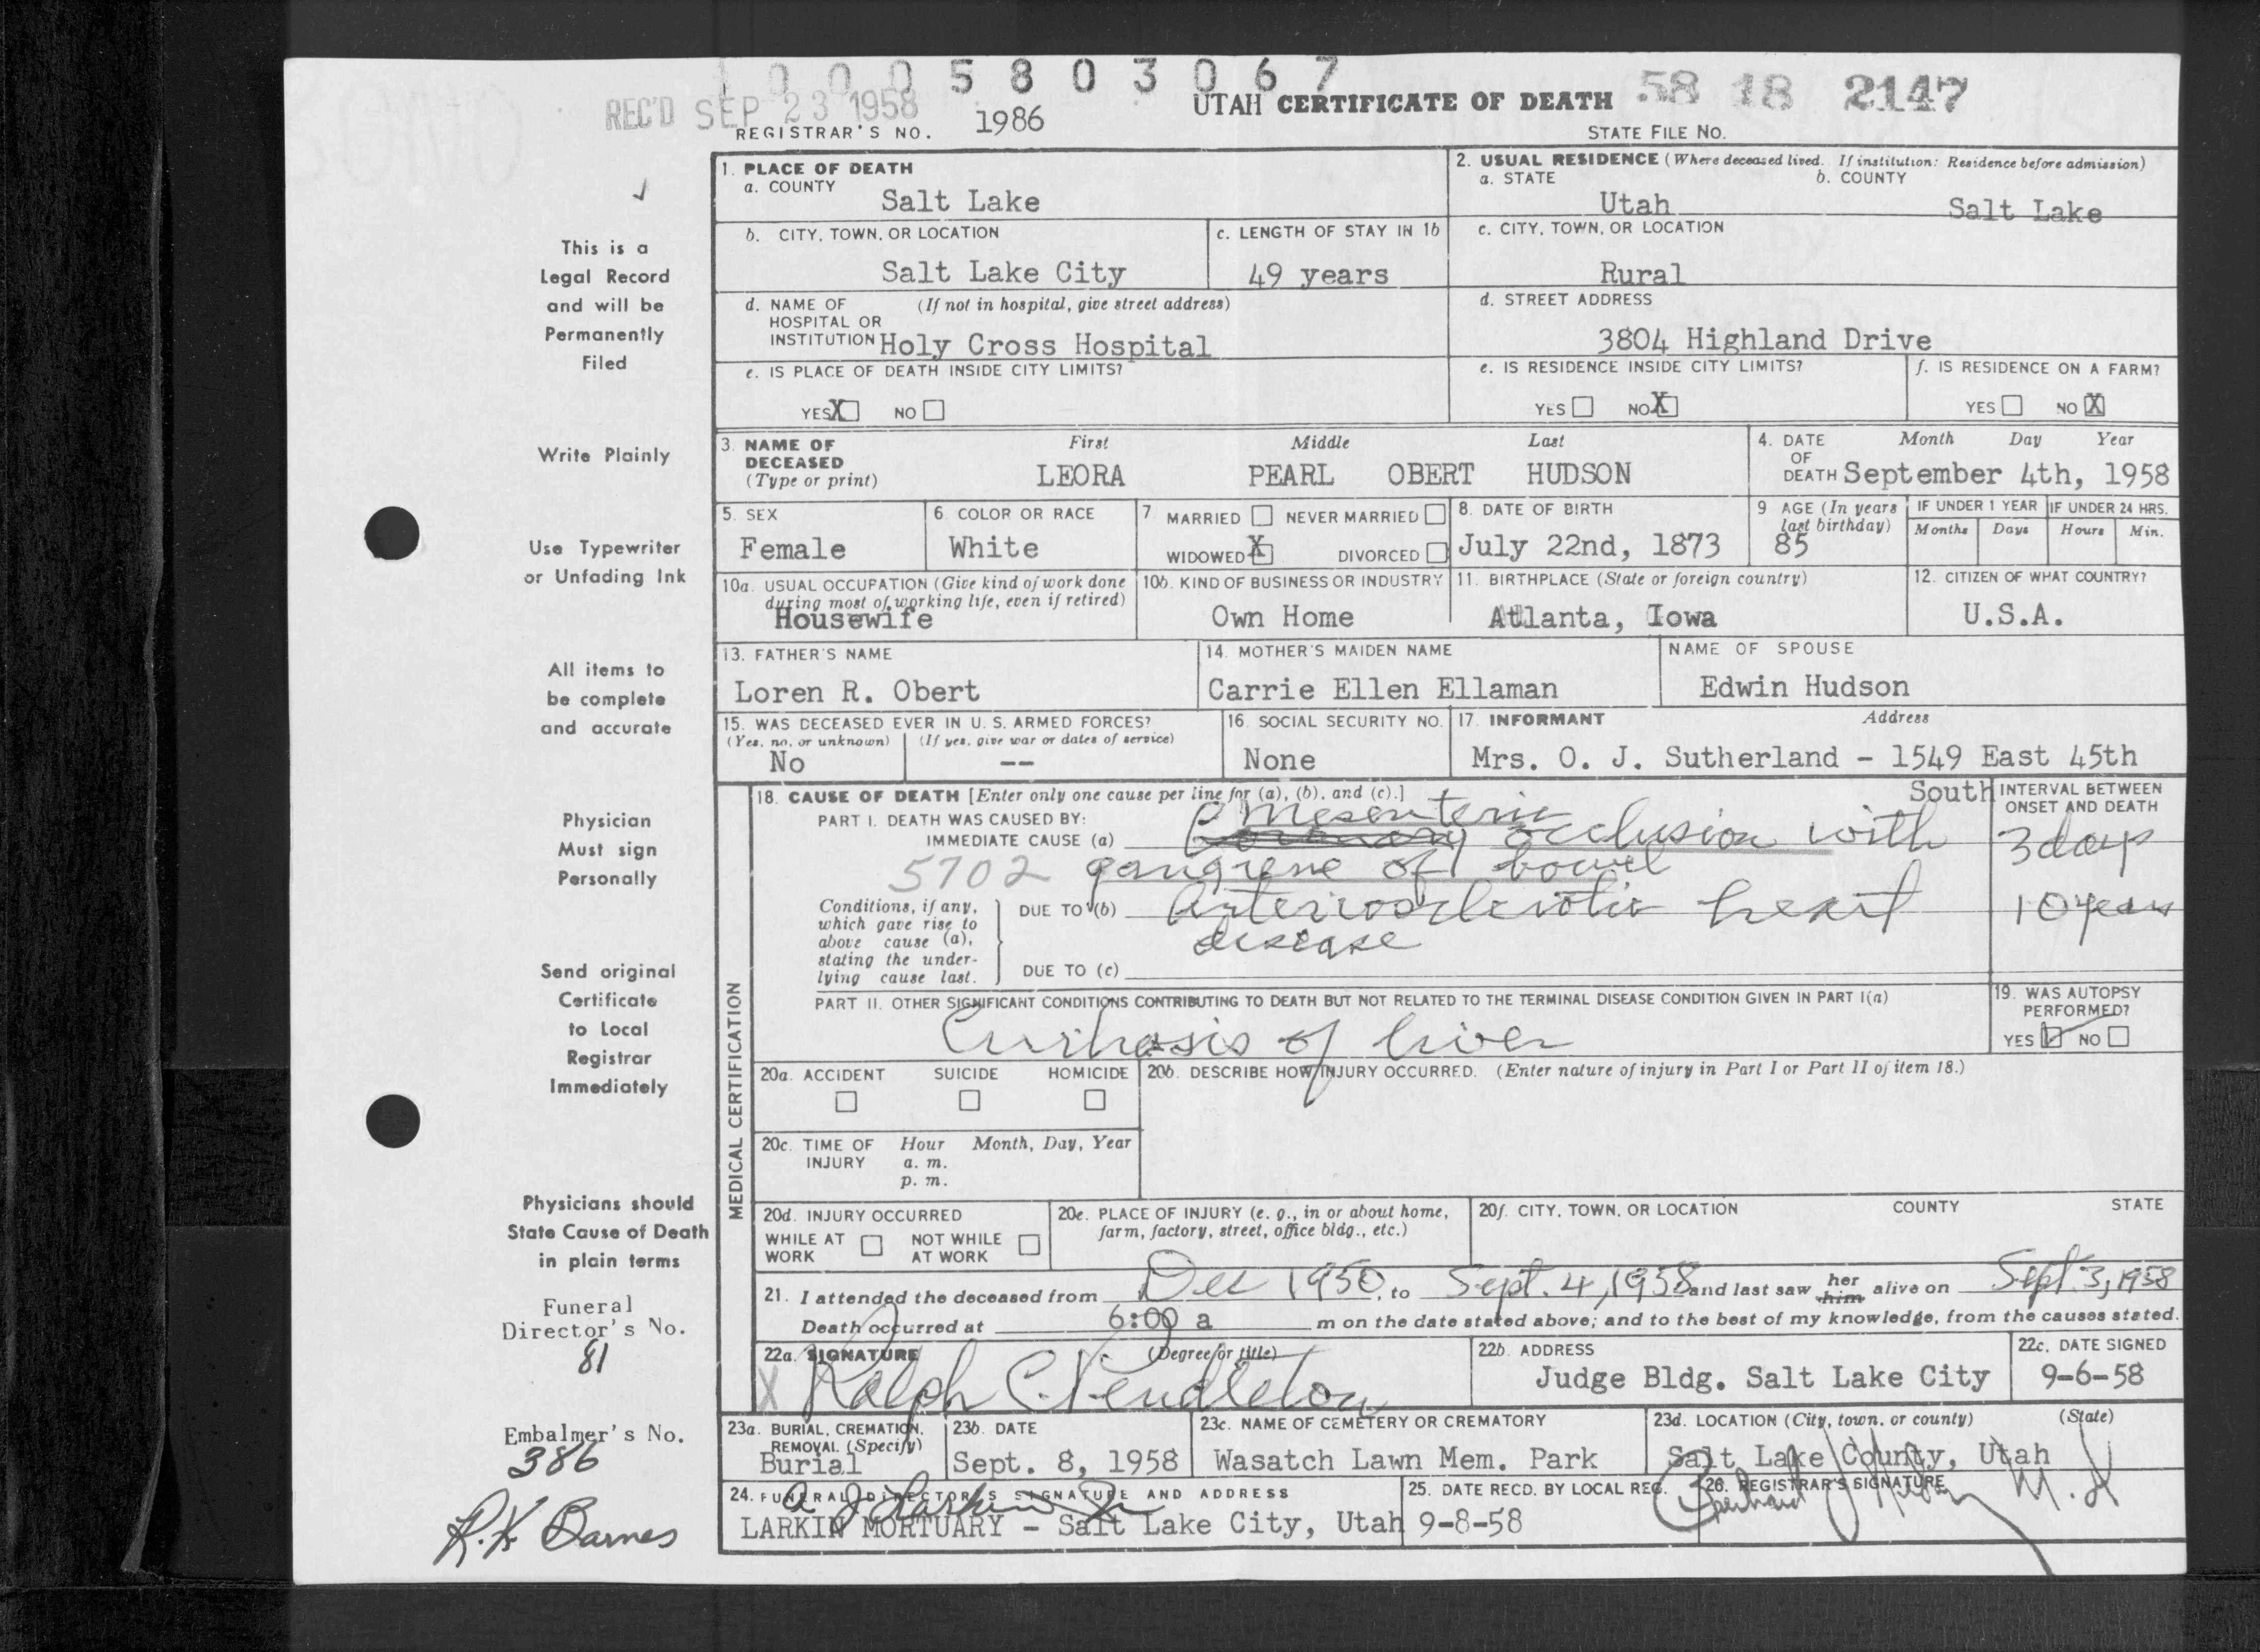 1 0 0 0 5 8 0 3 0 6 7
REC'D SEP 23 1958
UTAH CERTIFICATE OF DEATH 58 18 2147
REGISTRAR'S NO. 1986
STATE FILE NO.
1. PLACE OF DEATH
a. COUNTY
Salt Lake
2. USUAL RESIDENCE (Where deceased lived. If institution: Residence before admission)
a. STATE b. COUNTY
Utah Salt Lake
b. CITY, TOWN, OR LOCATION
Salt Lake City
c. LENGTH OF STAY IN 1b
49 years
c. CITY, TOWN, OR LOCATION
Rural
d. NAME OF (If not in hospital, give street address)
HOSPITAL OR
INSTITUTION Holy Cross Hospital
d. STREET ADDRESS
3804 Highland Drive
e. IS PLACE OF DEATH INSIDE CITY LIMITS?
YES X NO
e. IS RESIDENCE INSIDE CITY LIMITS?
YES NO X
f. IS RESIDENCE ON A FARM?
YES NO X
3. NAME OF
DECEASED
(Type or print)
First Middle Last
LEORA PEARL OBERT HUDSON
4. DATE
OF
DEATH
Month Day Year
September 4th, 1958
5. SEX
Female
6. COLOR OR RACE
White
7 MARRIED NEVER MARRIED
WIDOWED X DIVORCED
8. DATE OF BIRTH
July 22nd, 1873
9 AGE (In years
last birthday)
85
IF UNDER 1 YEAR
Months Days
IF UNDER 24 HRS.
Hours Min.
10a. USUAL OCCUPATION (Give kind of work done
during most of working life, even if retired)
Housewife
10b. KIND OF BUSINESS OR INDUSTRY
Own Home
11. BIRTHPLACE (State or foreign country)
Atlanta, Iowa
12. CITIZEN OF WHAT COUNTRY?
U.S.A.
13. FATHER'S NAME
Loren R. Obert
14. MOTHER'S MAIDEN NAME
Carrie Ellen Ellaman
NAME OF SPOUSE
Edwin Hudson
15. WAS DECEASED EVER IN U. S. ARMED FORCES?
(Yes, no, or unknown) (If yes, give war or dates of service)
No --
16. SOCIAL SECURITY NO.
None
17. INFORMANT Address
Mrs. O. J. Sutherland - 1549 East 45th
South
MEDICAL CERTIFICATION
18. CAUSE OF DEATH [Enter only one cause per line for (a), (b), and (c).]
INTERVAL BETWEEN
ONSET AND DEATH
PART I. DEATH WAS CAUSED BY:
IMMEDIATE CAUSE (a)
Mesenteric
Coronary occlusion with
3 days
5702 gangrene of bowel
Conditions, if any,
which gave rise to
above cause (a),
stating the under-
lying cause last.
DUE TO (b) Arteriosclerotic heart
10 years
disease
DUE TO (c)
PART II. OTHER SIGNIFICANT CONDITIONS CONTRIBUTING TO DEATH BUT NOT RELATED TO THE TERMINAL DISEASE CONDITION GIVEN IN PART I(a)
Cirrhosis of liver
19. WAS AUTOPSY
PERFORMED?
YES ✓ NO
20a. ACCIDENT SUICIDE HOMICIDE
20b. DESCRIBE HOW INJURY OCCURRED. (Enter nature of injury in Part I or Part II of item 18.)
20c. TIME OF Hour Month, Day, Year
INJURY a. m.
p. m.
20d. INJURY OCCURRED
WHILE AT
WORK
NOT WHILE
AT WORK
20e. PLACE OF INJURY (e. g., in or about home,
farm, factory, street, office bldg., etc.)
20f. CITY, TOWN, OR LOCATION COUNTY STATE
21. I attended the deceased from Dec 1950, to Sept. 4, 1958 and last saw her him alive on Sept 3, 1958
Death occurred at 6:00 a m on the date stated above; and to the best of my knowledge, from the causes stated.
22a. SIGNATURE (Degree or title)
X Ralph C. Pendleton
22b. ADDRESS
Judge Bldg. Salt Lake City
22c. DATE SIGNED
9-6-58
23a. BURIAL, CREMATION,
REMOVAL (Specify)
Burial
23b. DATE
Sept. 8, 1958
23c. NAME OF CEMETERY OR CREMATORY
Wasatch Lawn Mem. Park
23d. LOCATION (City, town, or county) (State)
Salt Lake County, Utah
24. FUNERAL DIRECTOR'S SIGNATURE AND ADDRESS
A J Larkin Jr
LARKIN MORTUARY - Salt Lake City, Utah
25. DATE RECD. BY LOCAL REG.
9-8-58
26. REGISTRAR'S SIGNATURE
M.D
This is a
Legal Record
and will be
Permanently
Filed
Write Plainly
Use Typewriter
or Unfading Ink
All items to
be complete
and accurate
Physician
Must sign
Personally
Send original
Certificate
to Local
Registrar
Immediately
Physicians should
State Cause of Death
in plain terms
Funeral
Director's No.
81
Embalmer's No.
386
R. K. Barnes